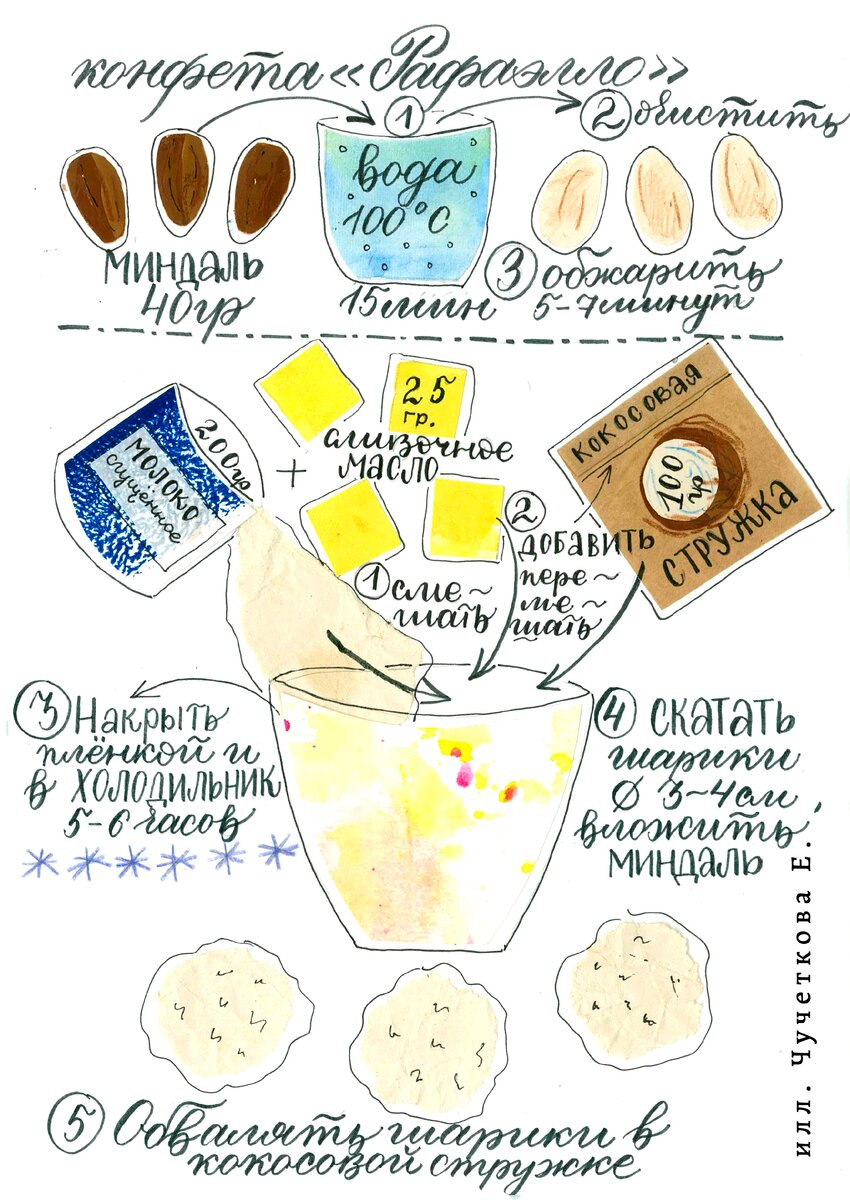 конфета «Рафаэлло»
1
2 очистить
вода
100°C
миндаль
40гр
15мин
3 обжарить
5-7минут
молоко
сгущенное
200гр
+
25
гр.
сливочное
масло
кокосовая
100
гр
стружка
1 сме~
шать
2
добавить
пере~
ме~
шать
3 Накрыть
плёнкой и
в холодильник
5-6 часов
4 скатать
шарики
Ø 3~4см,
вложить
миндаль
5 Обвалять шарики в
кокосовой стружке
илл. Чучеткова Е.